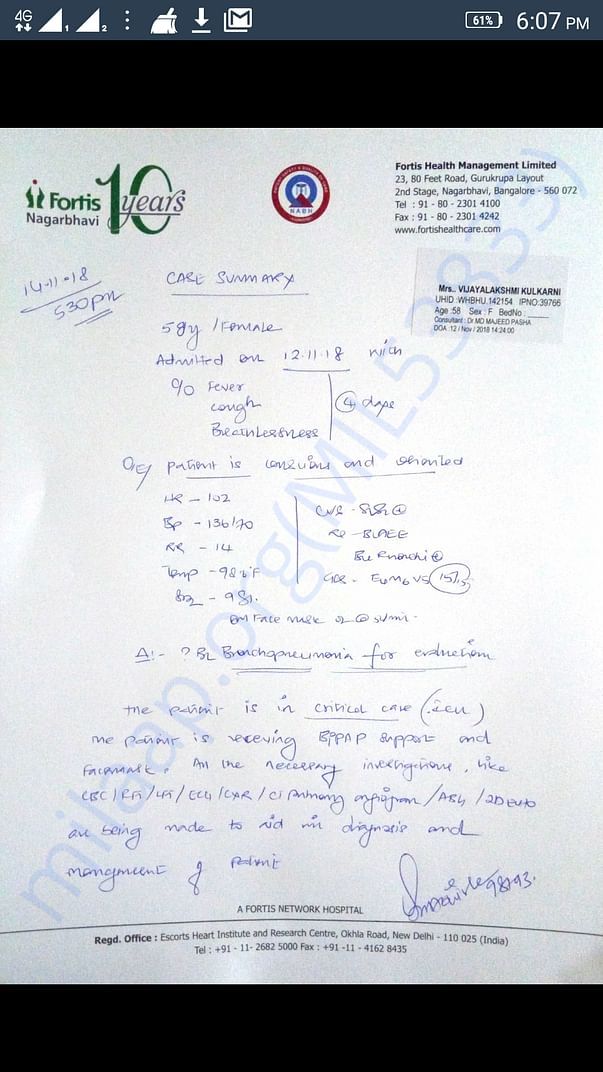 4G 1 2 61% 6:07 PM
Fortis 10 years
Nagarbhavi
NABH
Fortis Health Management Limited
23, 80 Feet Road, Gurukrupa Layout
2nd Stage, Nagarbhavi, Bangalore - 560 072
Tel : 91 - 80 - 2301 4100
Fax : 91 - 80 - 2301 4242
www.fortishealthcare.com
14-11-18
530pm
CASE SUMMARY
Mrs.. VIJAYALAKSHMI KULKARNI
UHID :WHBHU.142154 IPNO:39766
Age :58 Sex : F BedNo :
Consultant : Dr.MD MAJEED PASHA
DOA :12 / Nov / 2018 14:24:00
58y / Female
Admitted on 12.11.18 with
c/o Fever
cough
Breathlessness
4 days
O/E patient is conscious and oriented
HR - 102
BP - 136/70
RR - 14
Temp - 98.6°F
98%
on Face mask
CVS - S1S2
RS - BLAEE
B/L Rhonchi
E4M6V5 15/15
? B/L Bronchopneumonia for evaluation
The patient is in critical care (ICU)
The patient is receiving BIPAP support and
facemask. All the necessary investigations, like
CBC / RFT / LFT / ECG / CXR / CT Pulmonary angiogram / ABG / 2D ECHO
are being made to aid in diagnosis and
mangment of patient
98193
A FORTIS NETWORK HOSPITAL
Regd. Office : Escorts Heart Institute and Research Centre, Okhla Road, New Delhi - 110 025 (India)
Tel : +91 - 11- 2682 5000 Fax : +91 -11 - 4162 8435